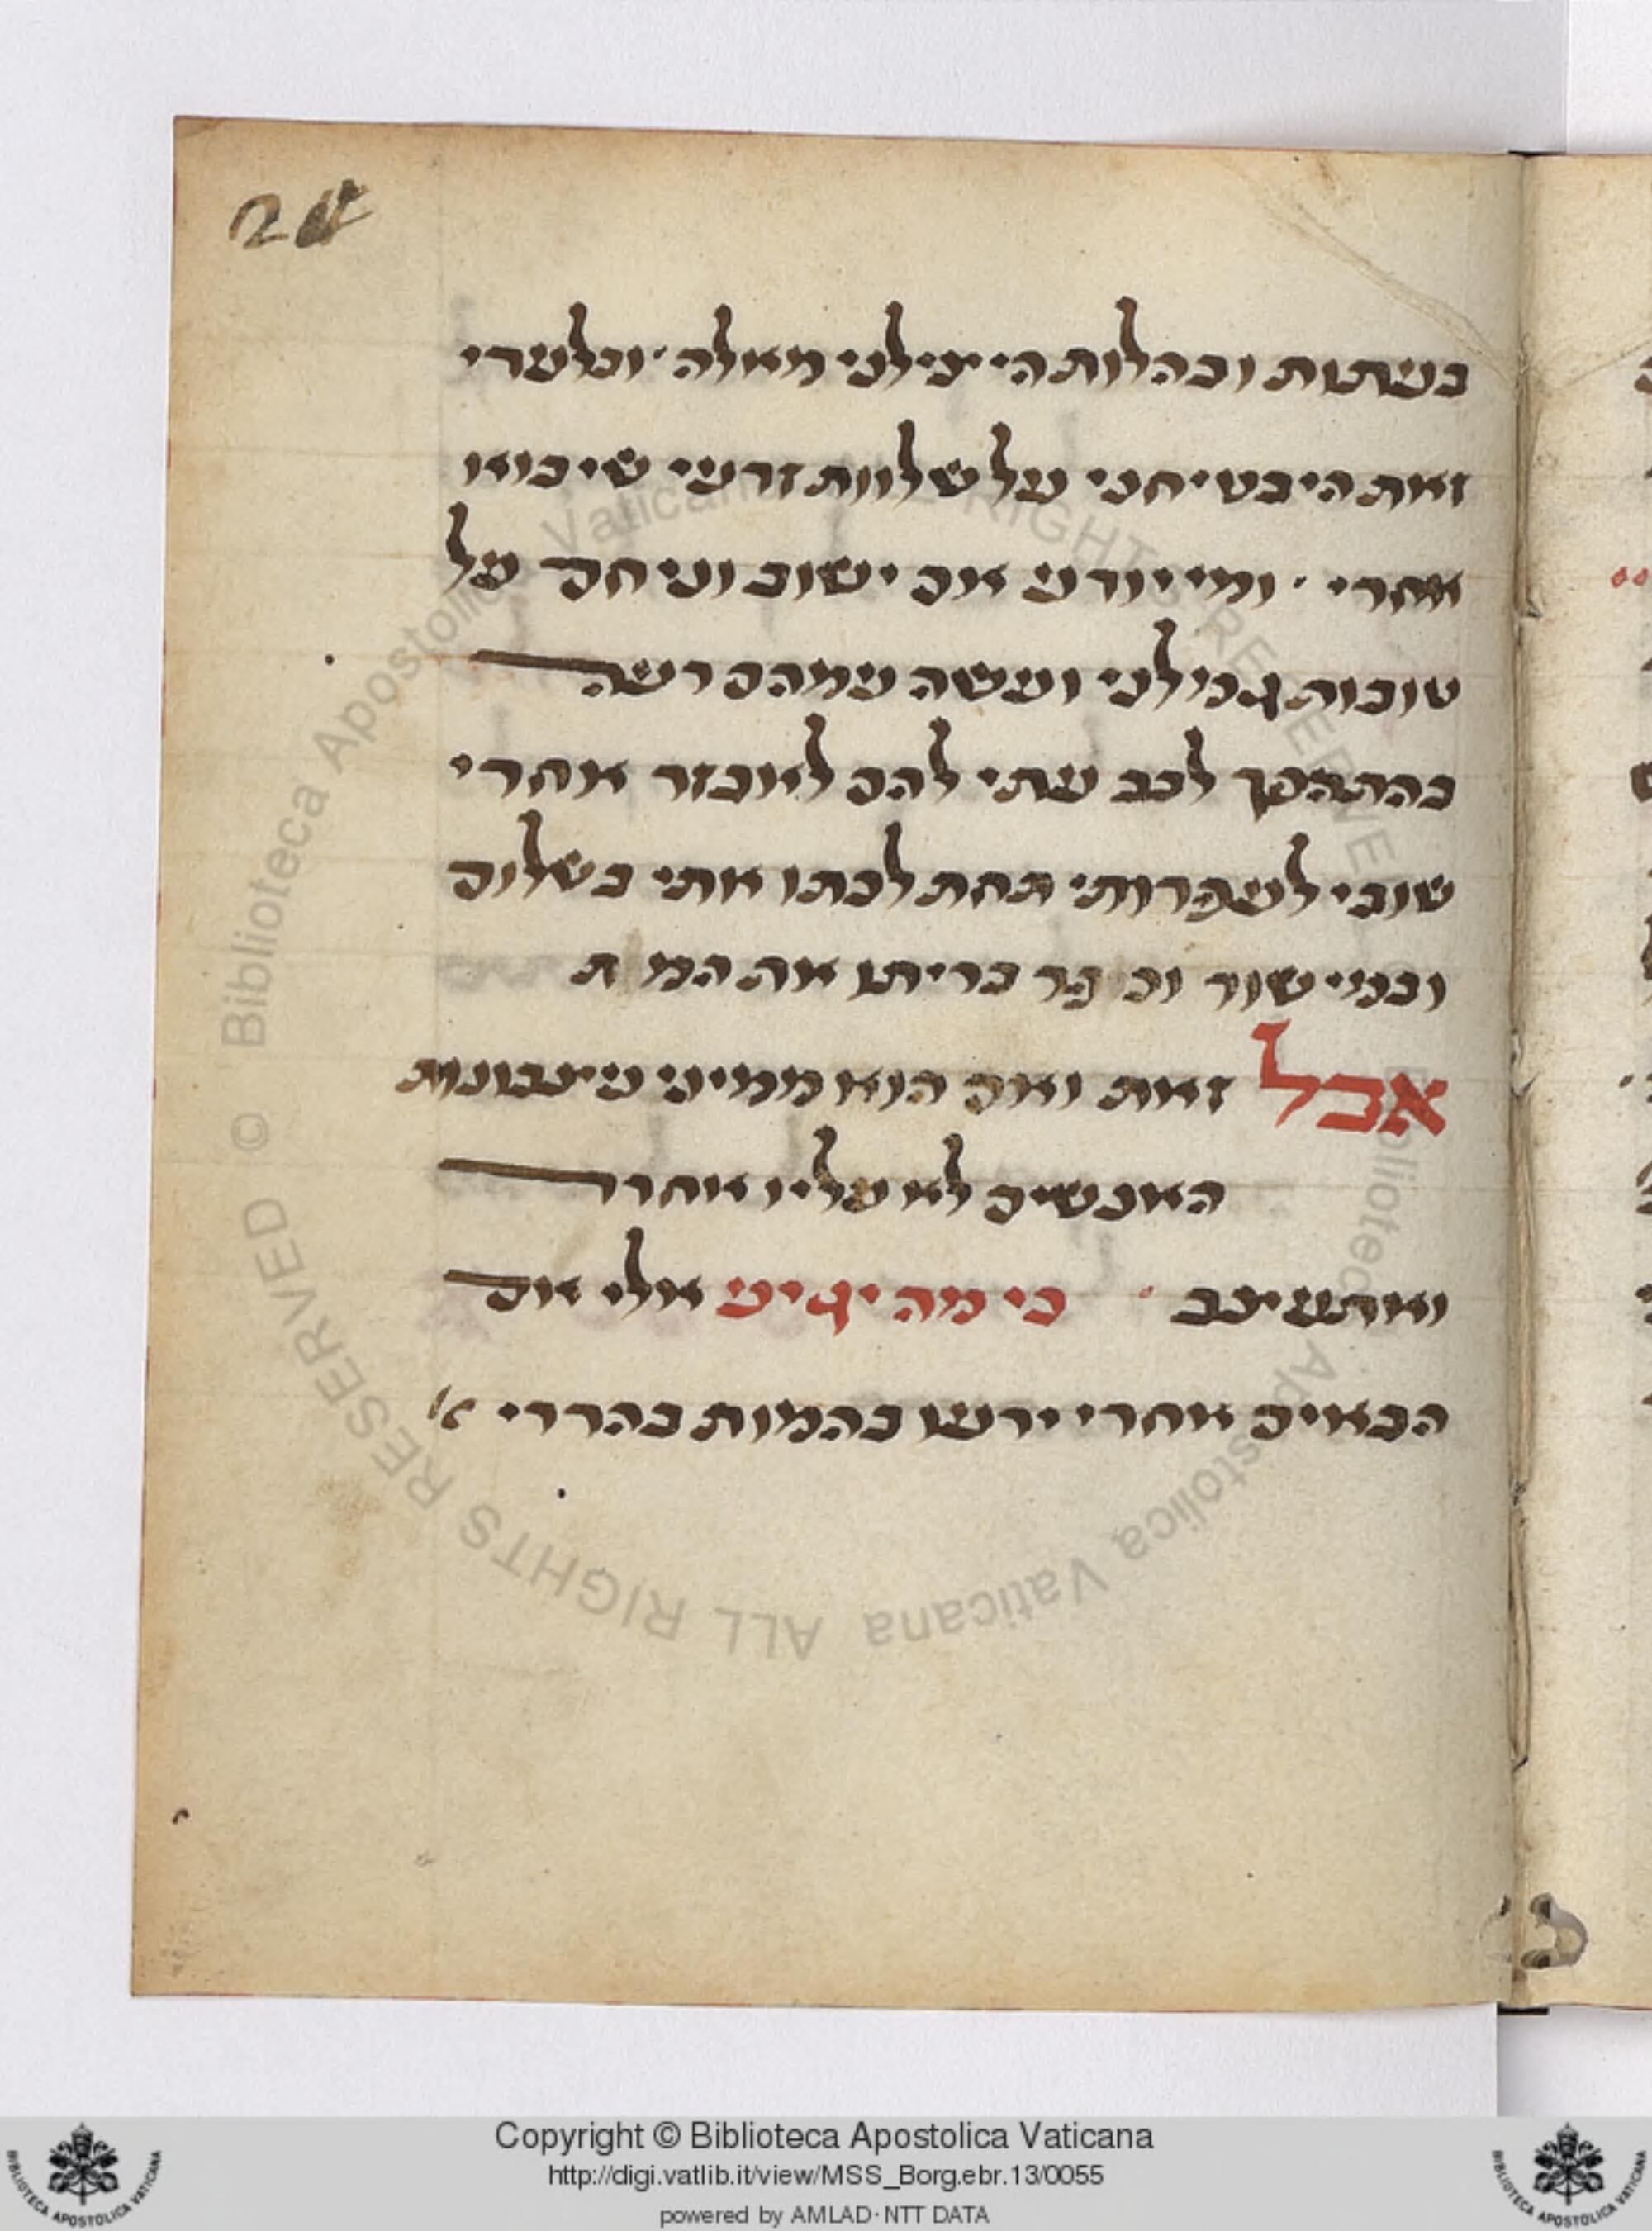 24
בעתות ובהלות הי יצילני מאלה · ובלעדי
זאת הי בטיחני על שלוות זרעי שיבואו
אחרי · ומי יודע אם ישוב וניחם על
טובות גמילני ועשה עמהם רעה
בהתהפך לבב עתי להם לאכזר אחרי
שובי לעפרותי תחת לכתו אתי בשלום
ובמישור וכ פר בריתו את המ ת
אבל זאת ואם הוא ממיני עיצבונות
האנשים לא עליו אחרד
ואתעיצב · כי מה יגיע אלי אם
הבאים אחרי ירשו בהמות בהררי א׳
Copyright © Biblioteca Apostolica Vaticana
http://digi.vatlib.it/view/MSS_Borg.ebr.13/0055
powered by AMLAD·NTT DATA
Biblioteca Apostolica Vaticana ALL RIGHTS RESERVED ©
BIBLIOTECA APOSTOLICA VATICANA
BIBLIOTECA APOSTOLICA VATICANA